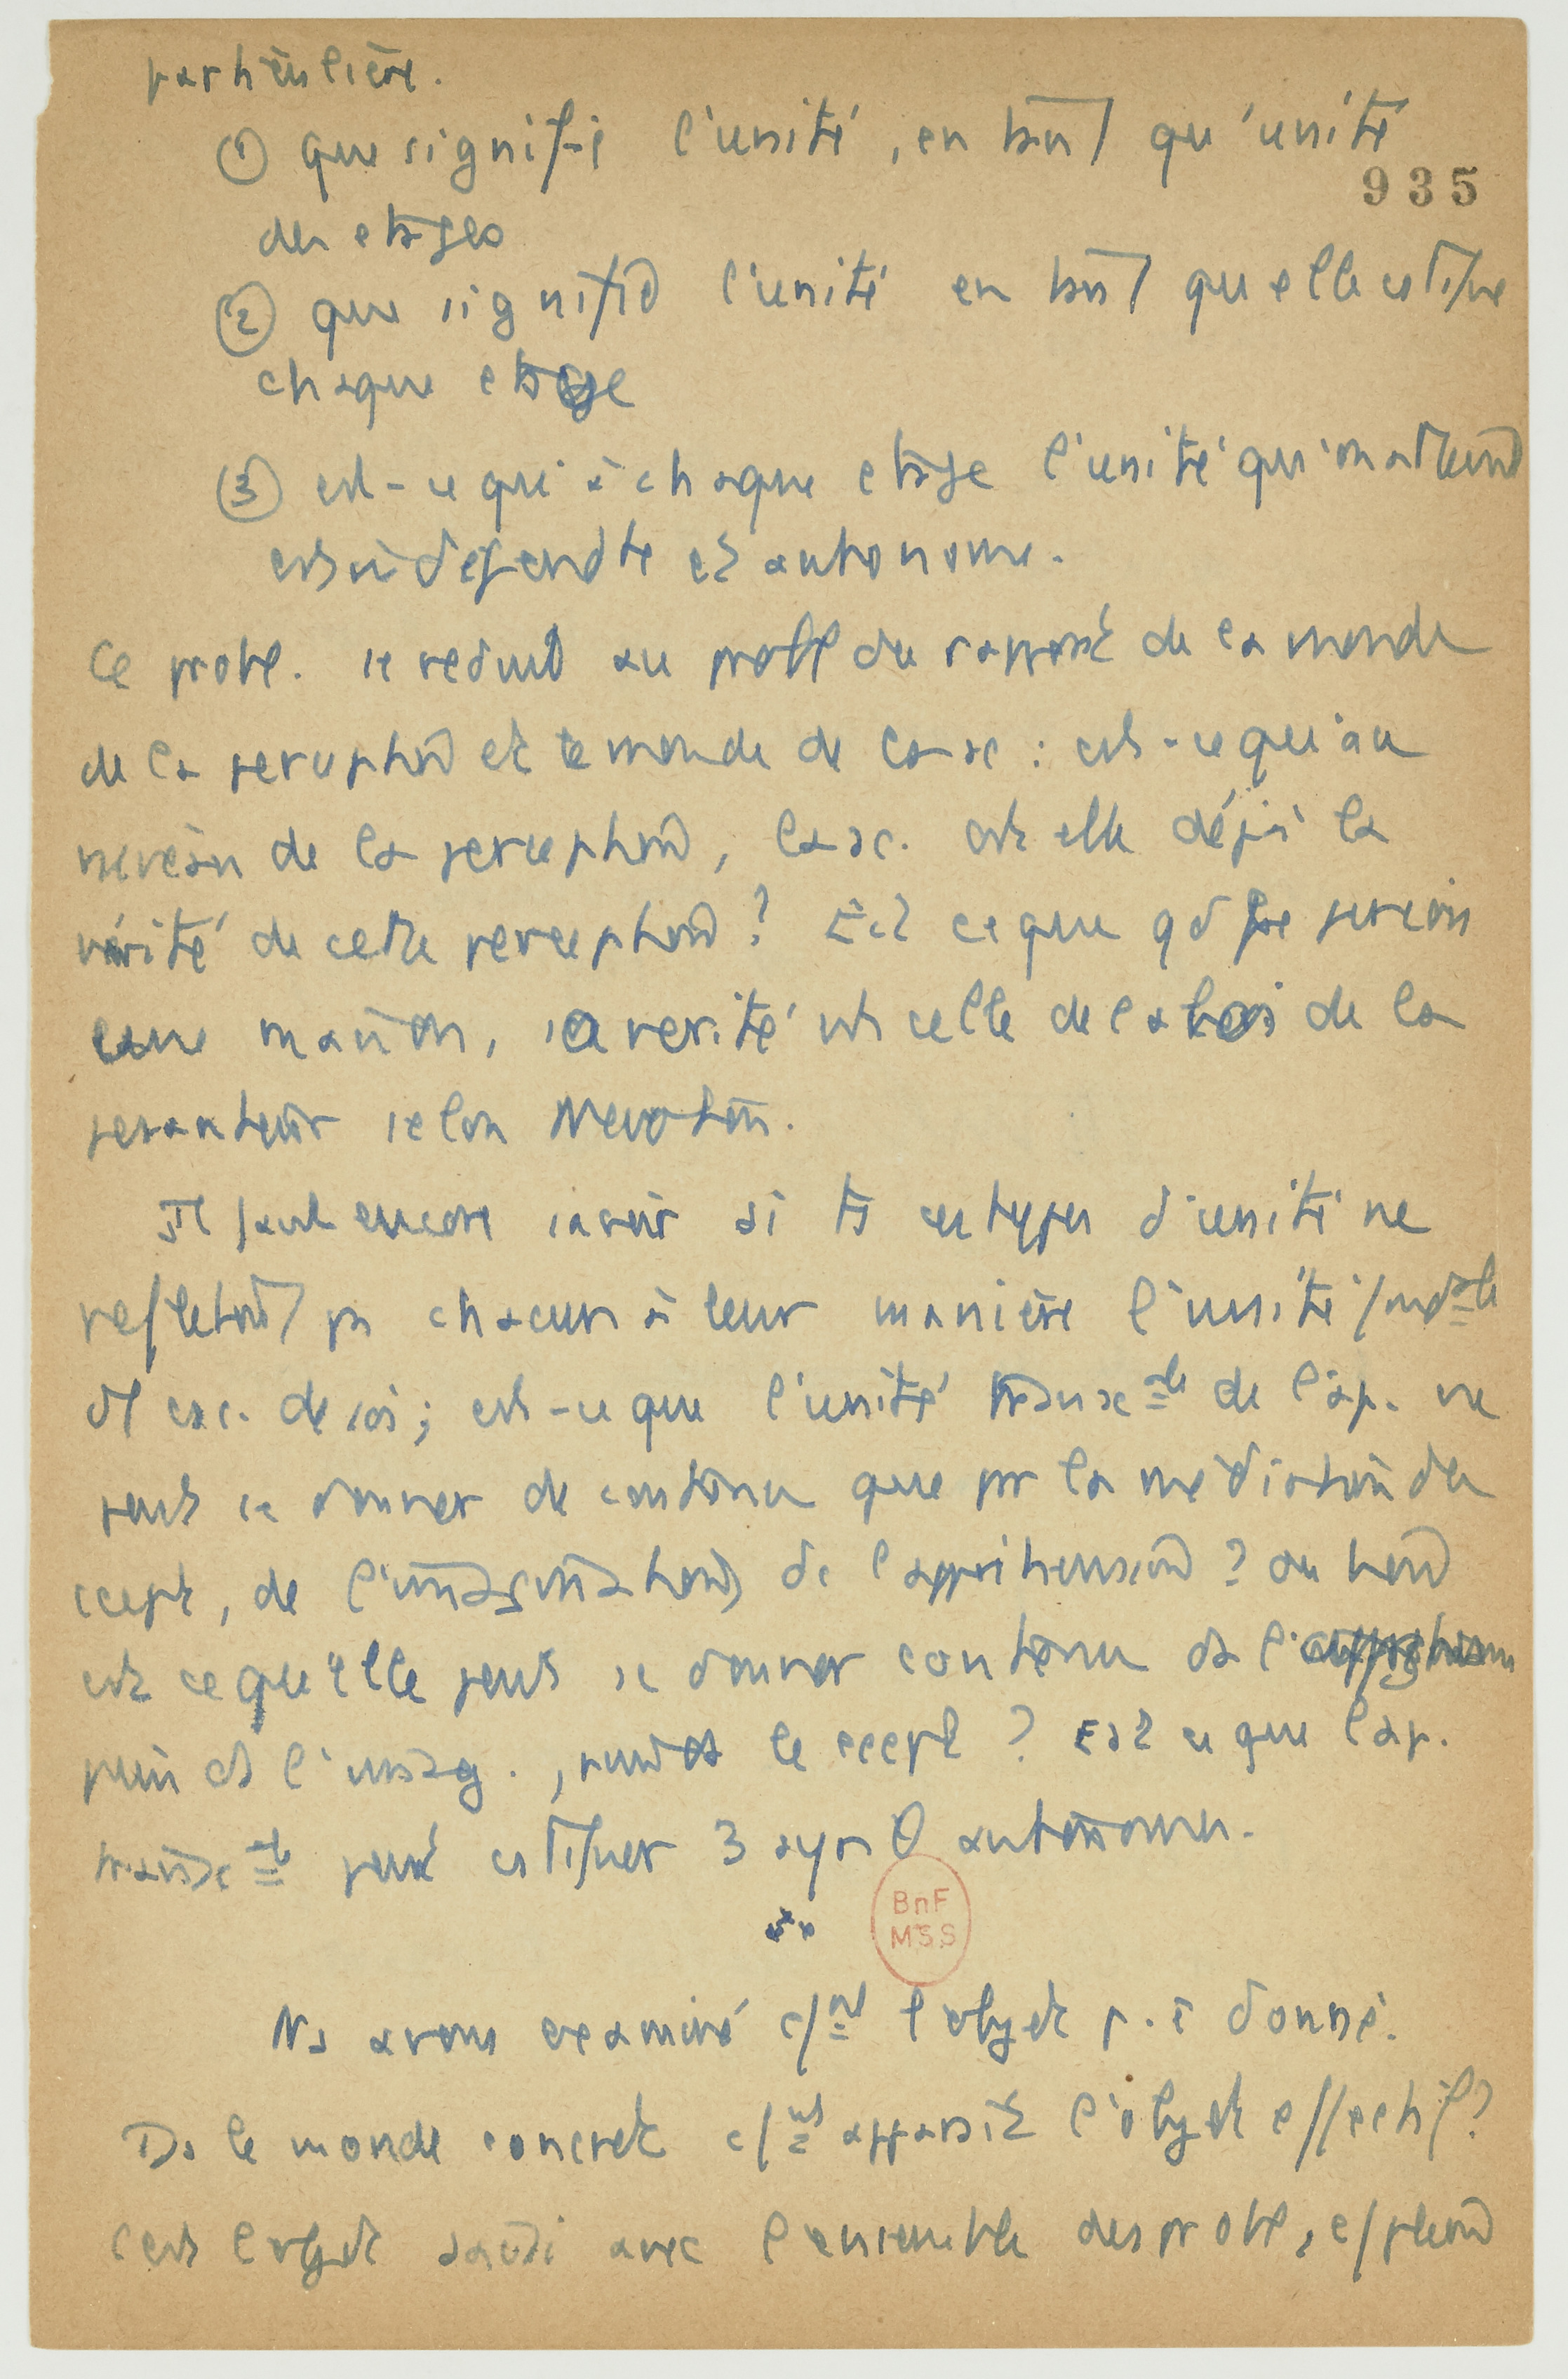 particulière.
① que signifie l'unité, en tant qu'unité
935
des etages
② que signifie l'unité en tant qu'elle
chaque etage
③ est-ce qu'à chaque etage l'unité qu'on atteint
est indépendte et autonome.
Ce probl. se réduit au probl du rapport de la monde
de la perception et le monde de la sc : est-ce qu'au
niveau de la perception, la sc. est elle déjà la
vérité de cette perception ? Est ce que qd je perçois
une maison, sa vérité est celle de la loi de la
pesanteur selon Newton.
Il faut encore savoir si ts ces types d'unité ne
refletent ps chacun à leur manière l'unité fondale
de soi ; est-ce que l'unité transcale de l'ap. ne
peut se donner de contenu que pr la médiation du
ccept, de l'imagination, de l'appréhension ? ou bien
est ce qu'elle peut se donner contenu ds l'appréhension
puis ds l'imag., puis ds le ccept ? Est ce que l'ap.
transcale peut cstituer 3 autonomes.
BnF
MSS
Ns avons examiné l'objet p. ê donné.
Ds le monde concret apparaît l'objet effectif ?
C'est l'objet saisi avec l'ensemble des probl,